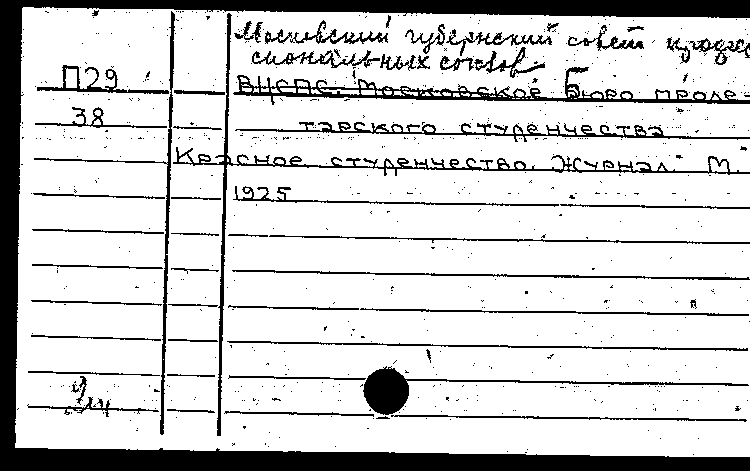 Московский губернский совет профес-
сиональных союзов
П29 ВЦСПС. Московское Бюро проле-
38 тарского студенчества
Красное студенчество. Журнал. М.
1925